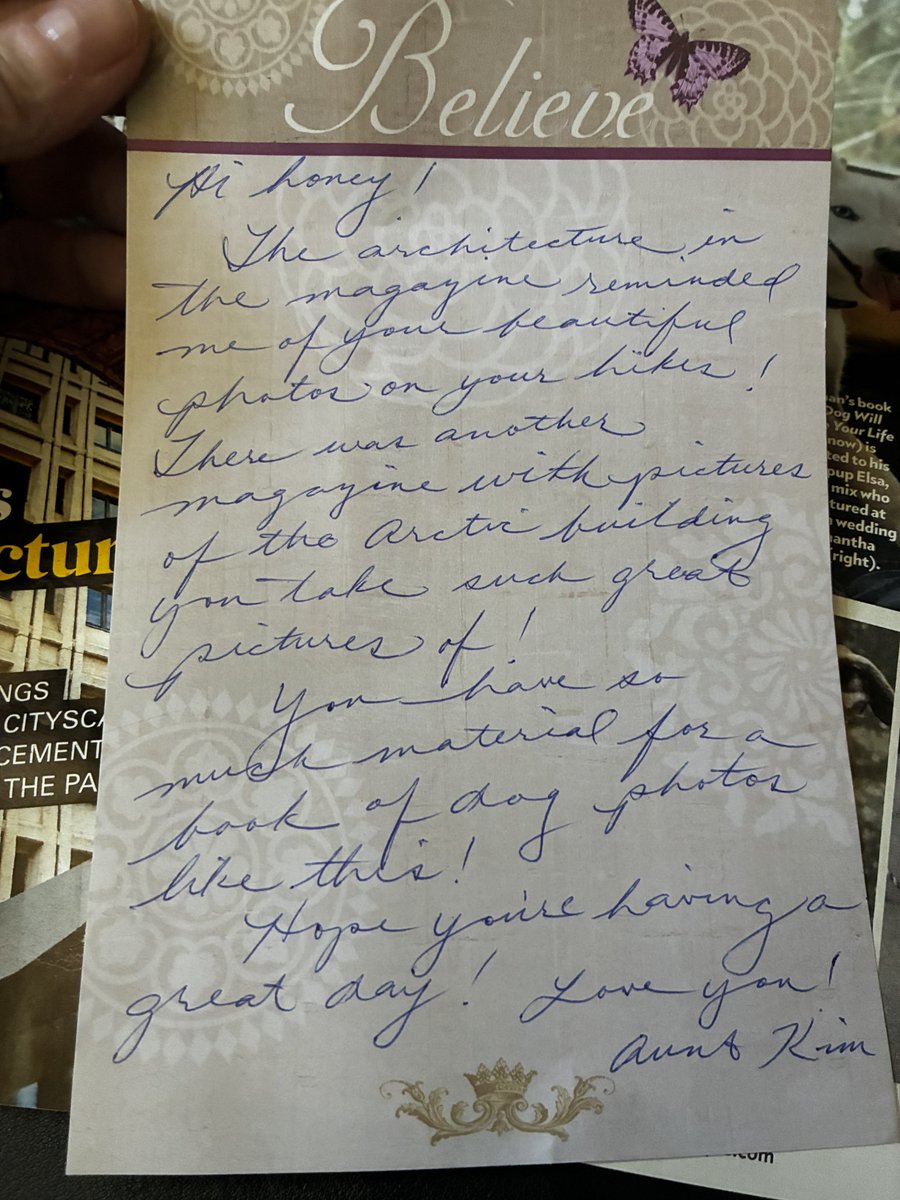 Believe
Hi honey!
The architecture in
the magazine reminded
me of your beautiful
photos on your hikes!
There was another
magazine with pictures
of the Arctic building
you take such great
pictures of!
You have so
much material for a
book of dog photos
like this!
Hope you're having a
great day! Love you!
Aunt Kim
s
ctur
NGS
CITYSCA
CEMENT
THE PA
an's book
Dog Will
Your Life
now) is
ted to his
pup Elsa,
mix who
tured at
wedding
antha
(right).
.com